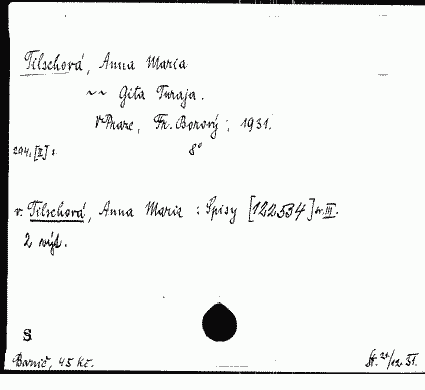 Tilschová, Anna Maria
~~ Gita Turaja.
V Praze, Fr. Borový, 1931.
294, [II] s. 8°
v. Tilschová, Anna Maria : Spisy [122534] sv. III.
2 výt.
S
Barnič, 45 Kč. 31.